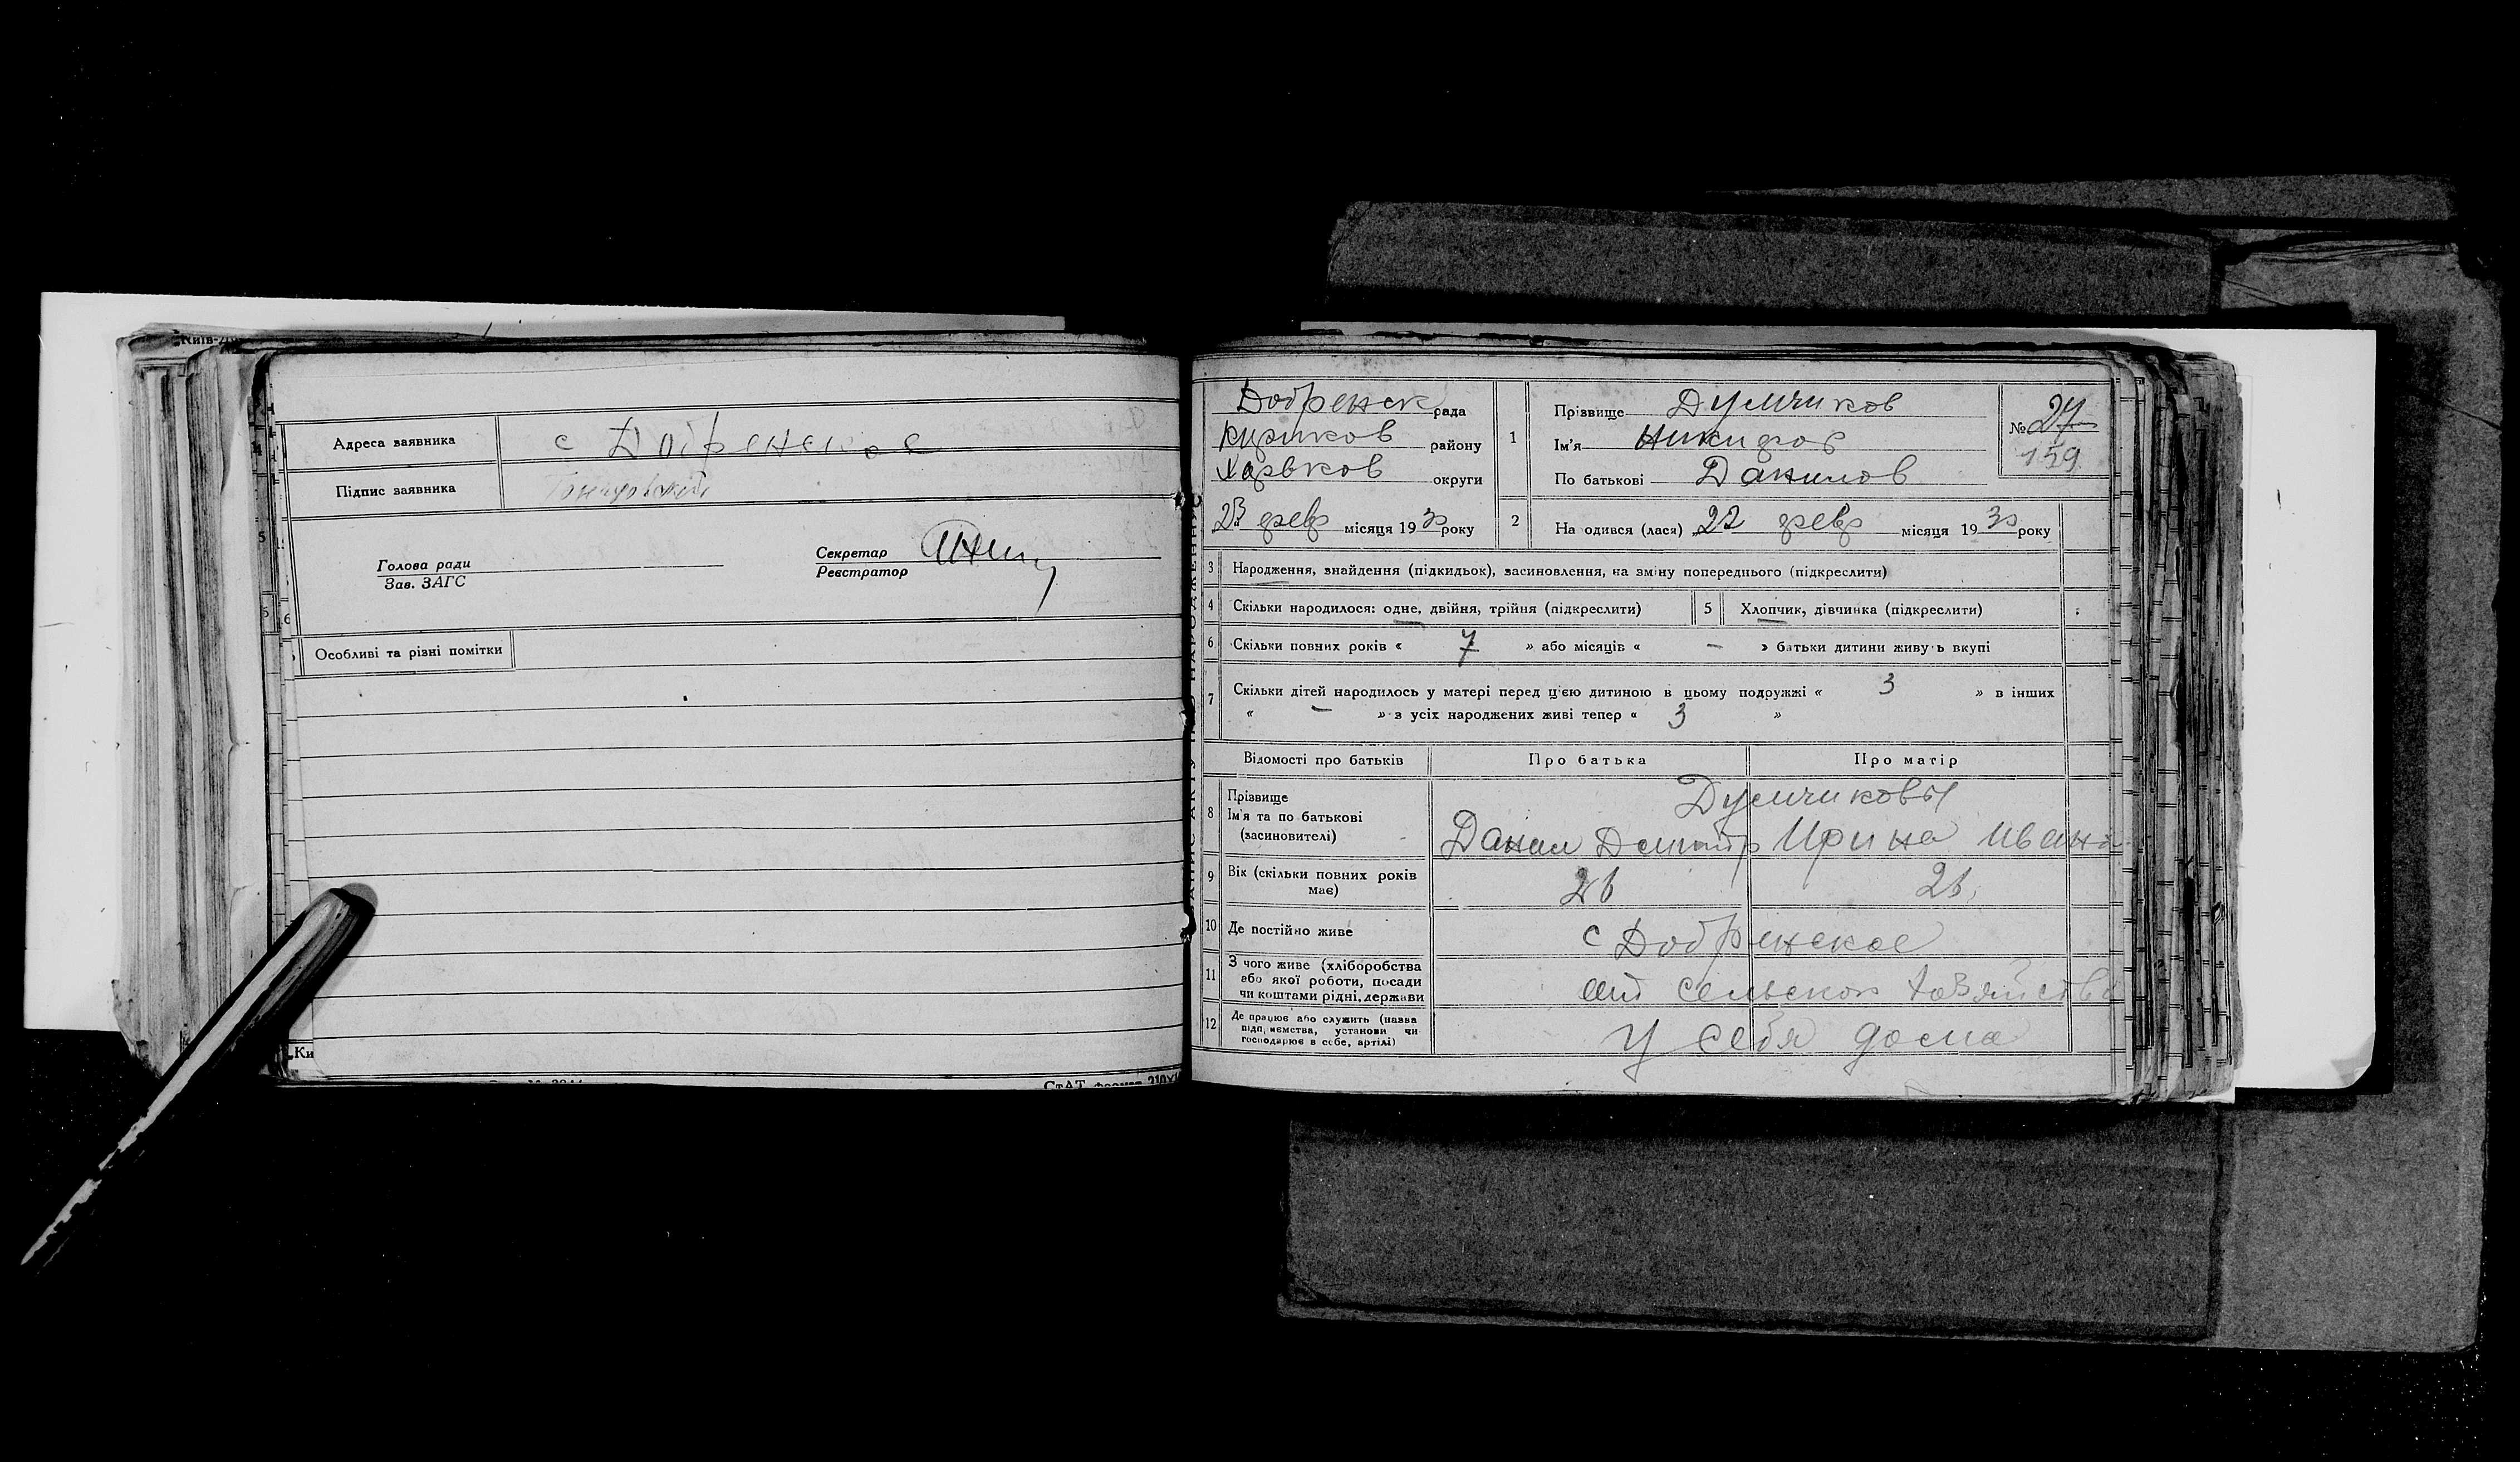 Київ-
Адреса заявника с Добренское
Підпис заявника
Голова ради
Зав. ЗАГС
Секретар
Реєстратор
Особливі та різні помітки
Ки
СтАТ формат 210×
Добренск рада
района
Харьков округи
23 февр місяця 1930 року
1
Прізвище Думчиков
Ім'я Никифор
По батькові Данилов
№ 27
159
2
На одився (лася) „22 февр місяця 1930 року
3 Народження, знайдення (підкидьок), засиновлення, на зміну попереднього (підкреслити)
4 Скільки народилося: одне, двійня, трійня (підкреслити) 5 Хлопчик, дівчинка (підкреслити)
6 Скільки повних років « 7 » або місяців « – » батьки дитини живу ь вкупі
7 Скільки дітей народилось у матері перед цією дитиною в цьому подружжі « 3 » в інших
« – » з усіх народжених живі тепер « 3 »
Відомості про батьків Про батька Про матір
8 Прізвище
Ім'я та по батькові
(засиновителі)
Думчиковы
Данил Дмитр Ирина Иван
9 Вік (скільки повних років
має)
26 26
10 Де постійно живе с Добренское
11 З чого живе (хліборобства
або якої роботи, посади
чи коштами рідні, держави
от сельском хозяйства
12 Де працює або служить (назва
підприємства, установи чи
господарює в себе, артілі)
у себя дома